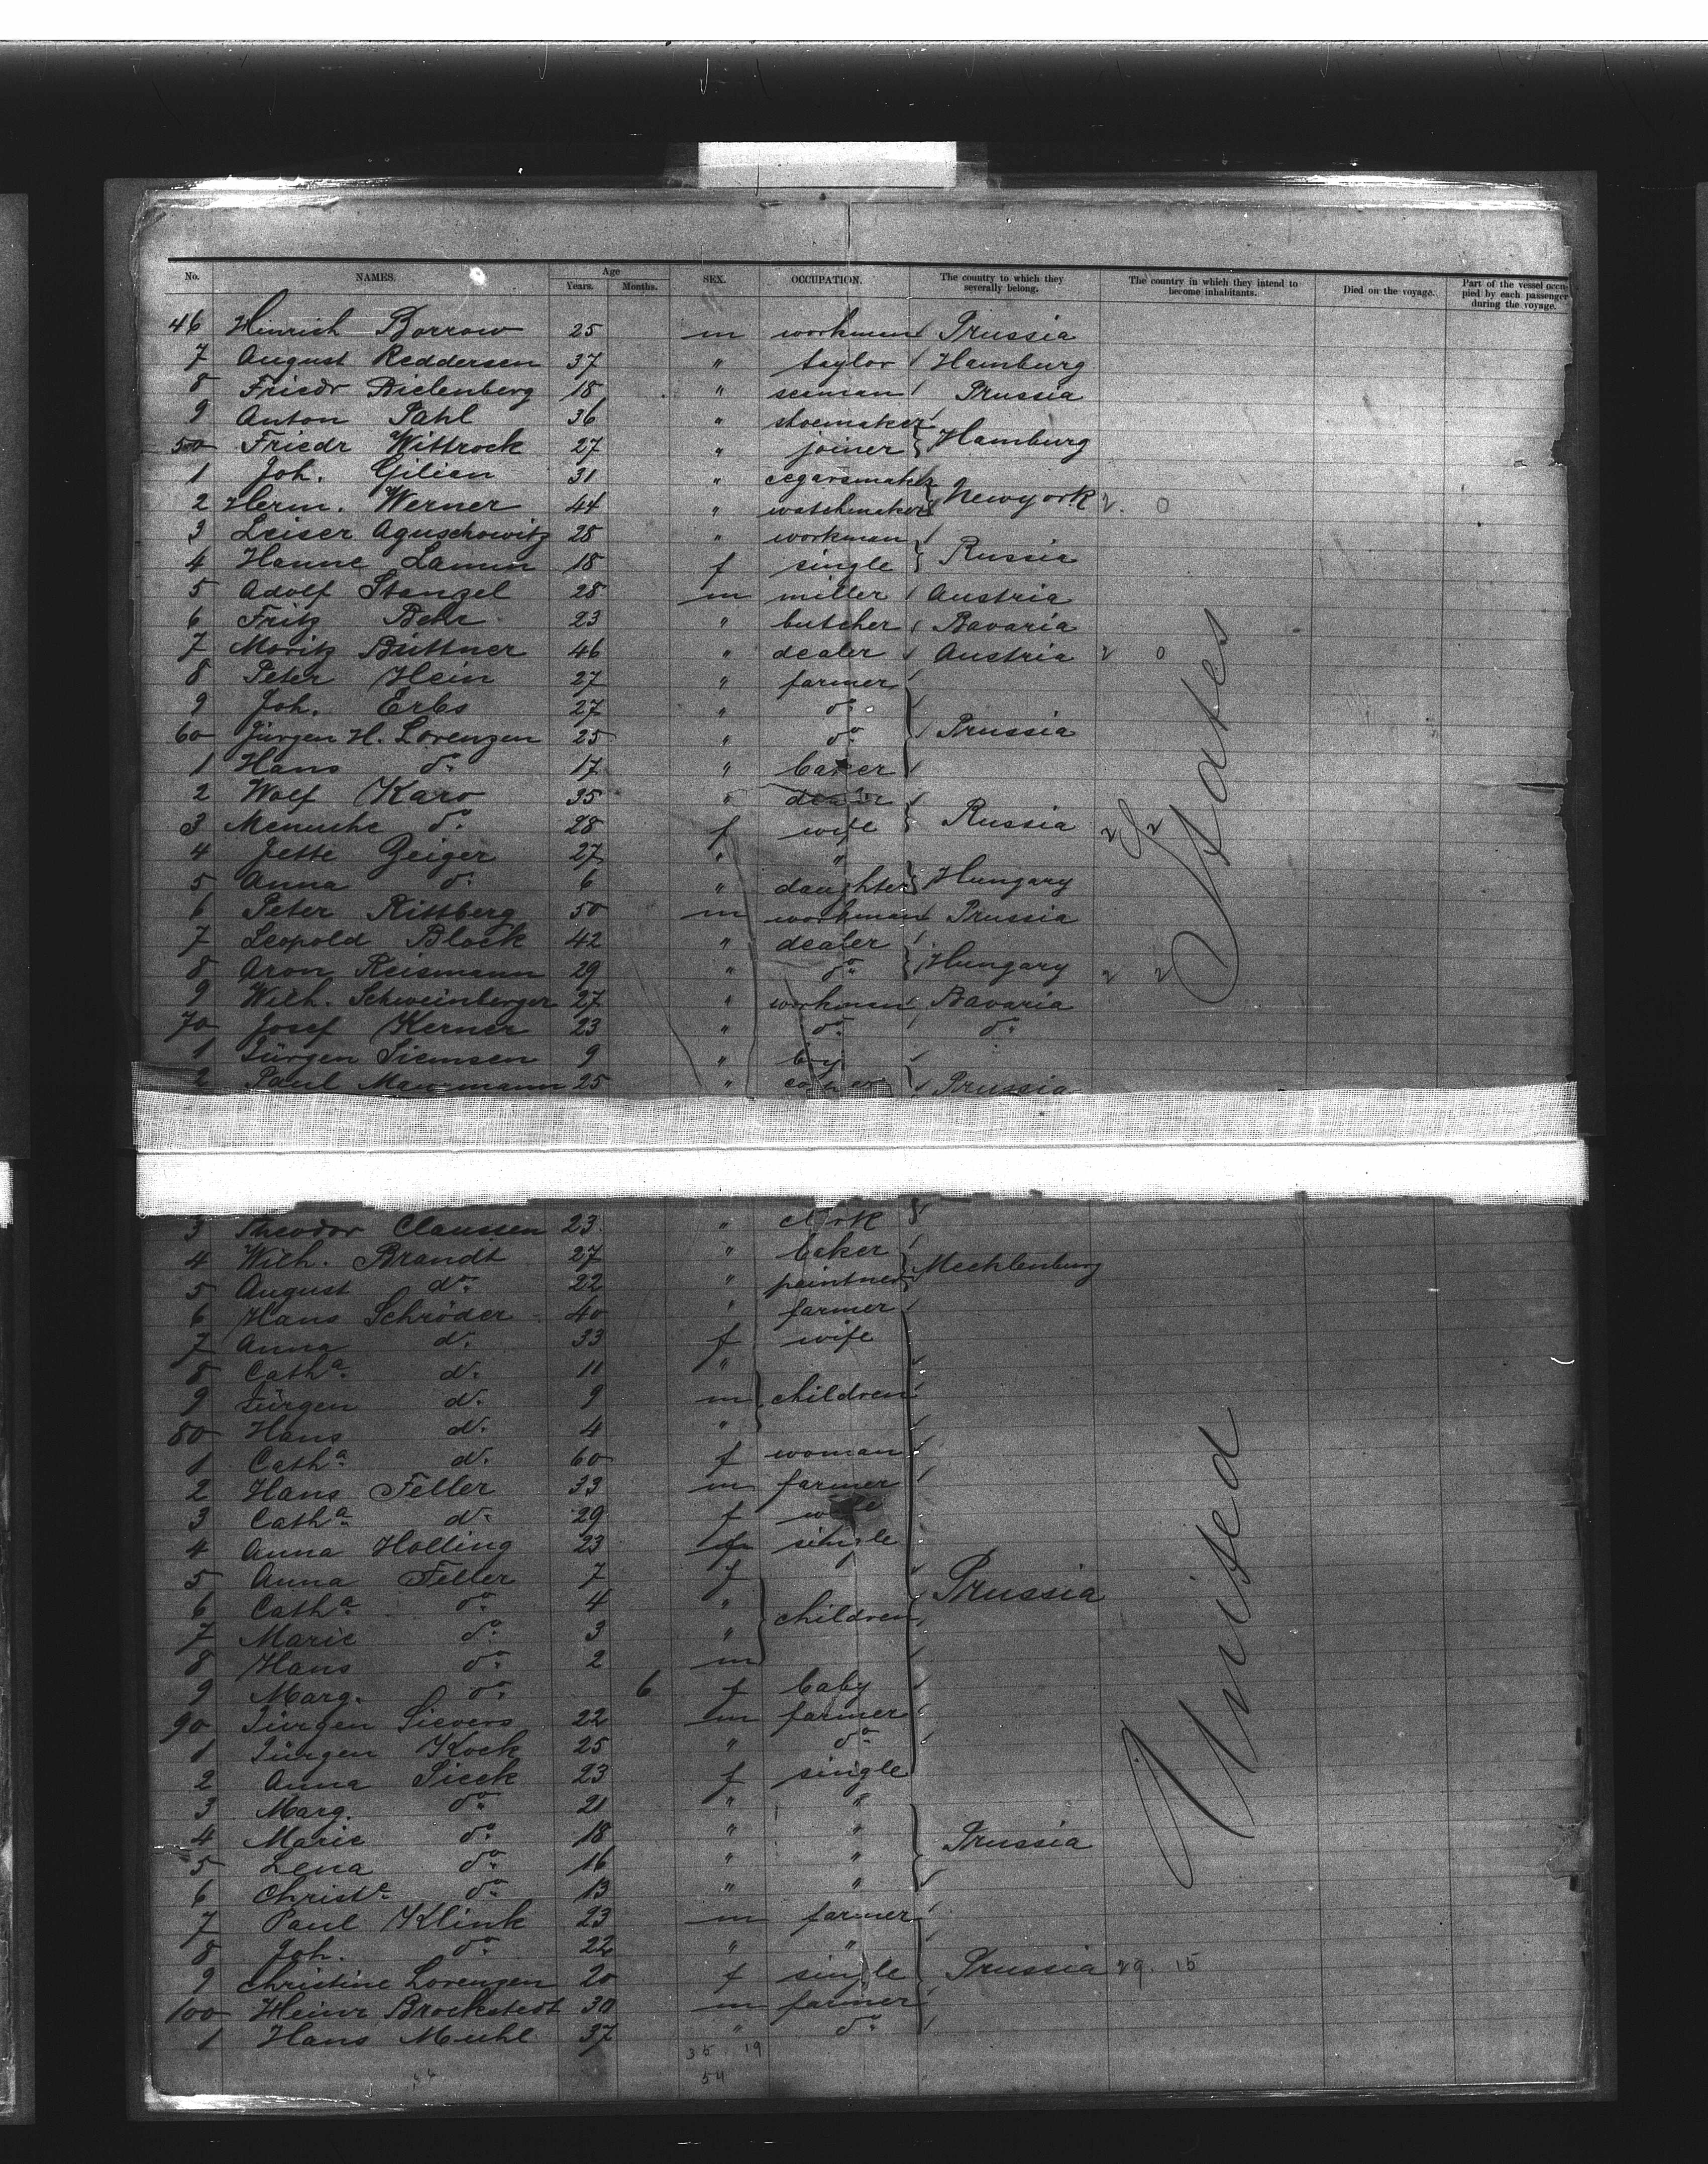 No. NAMES. Age Years. Months. SEX. OCCUPATION. The country to which they severally belong. The country in which they intend to become inhabitants. Died on the voyage. Part of the vessel occupied by each passenger during the voyage.
46 Hinrich Borrow 25 m workman Prussia
7 August Reddersen 37 " taylor Hamburg
8 Friedr Bielenberg 18 " seeman Prussia
9 Anton Pahl 36 " shoemaker
50 Friedr Wittrock 27 " joiner Hamburg
1 Joh. Gilien 31 " cegarsmaker
2 Herm. Werner 44 " watchmaker Newyork
3 Leiser Aguschowitz 28 " workman
4 Hanne Lamm 18 f single Russia
5 Adolf Stengel 28 m miller Austria
6 Fritz Behr 23 " butcher Bavaria
7 Moritz Büttner 46 " dealer Austria
8 Peter Hein 27 " farmer
9 Joh. Erbs 27 " do
60 Jürgen H. Lorenzen 25 " do Prussia
1 Hans do 17 " baker
2 Wolf Karo 35 " dealer
3 Menuche do 28 f wife Russia
4 Jette Geiger 27 " "
5 Anna do 6 " daughter Hungary
6 Peter Rittberg 50 m workman Prussia
7 Leopold Block 42 " dealer
8 Aron Reismann 29 " do Hungary
9 Wilh. Schweinberger 27 " workman Bavaria
70 Josef Kerner 23 " do do
1 Jürgen Siemsen 9 " boy
2 Paul 25 " Prussia
3 Theodor Claussen 23 " clerk
4 Wilh. Brandt 27 " baker
5 August do 22 " peintner Mecklenburg
6 Hans Schröder 40 " farmer
7 Anna do 33 f wife
8 Catha do 11 "
9 Jürgen do 9 m children
80 Hans do 4 "
1 Catha do 60 f woman
2 Hans Feller 33 m farmer
3 Catha do 29 f wife
4 Anna Holling 23 f single
5 Anna Feller 7 f
6 Catha do 4 " children Prussia
7 Marie do 3 "
8 Hans do 2 m
9 Marg. do 6 f baby
90 Jürgen Sievers 22 m farmer
1 Jürgen Kock 25 " do
2 Anna Sieck 23 f single
3 Marg. do 21 " "
4 Marie do 18 " " Prussia
5 Lena do 16 " "
6 Christe do 13 " "
7 Paul Klink 23 m farmer
8 Joh. do 22 " "
9 Christine Lorenzen 20 f single Prussia 29. 15
100 Heinr Brockstedt 30 m farmer
1 Hans Muhl 37 " do
35 19
54
United States